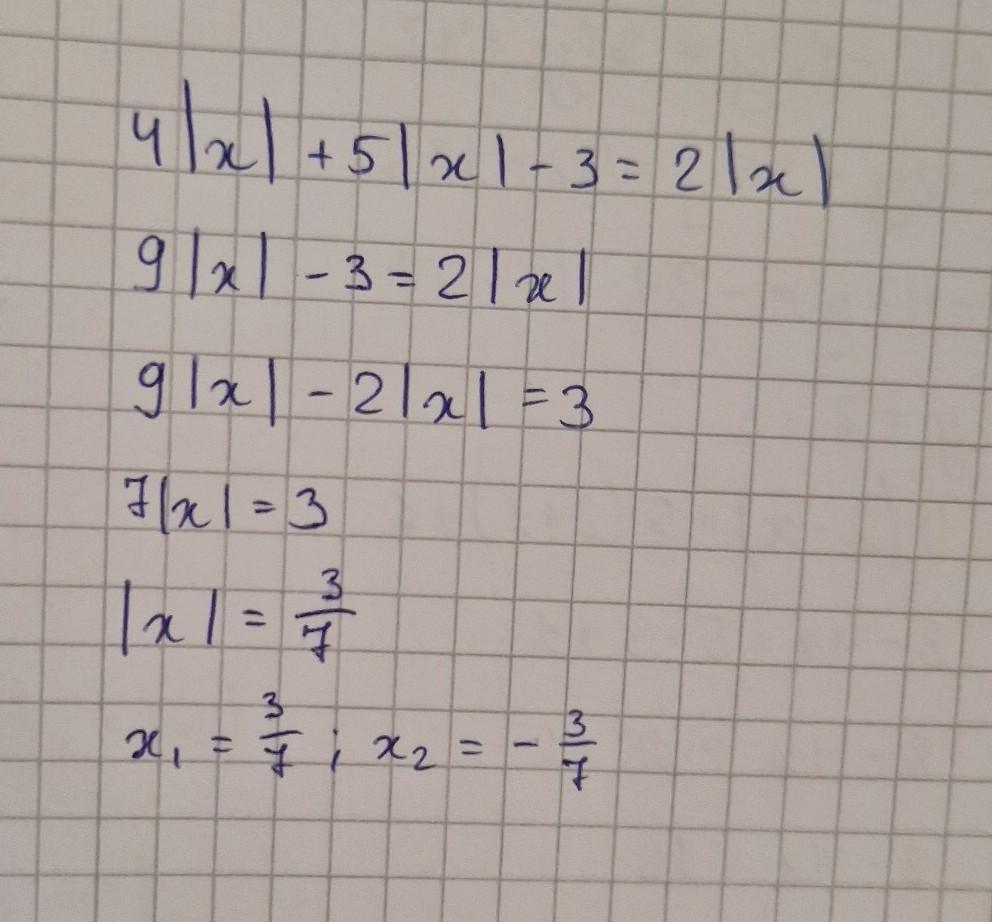 4|x| + 5|x| - 3 = 2|x|
9|x| - 3 = 2|x|
9|x| - 2|x| = 3
7|x| = 3
|x| = 3/7
x₁ = 3/7 ; x₂ = - 3/7